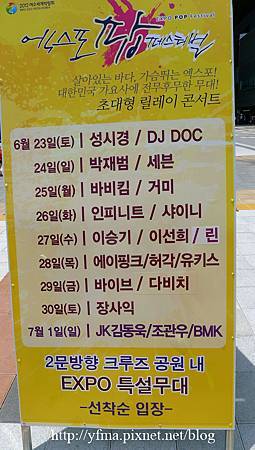 2012 여수세계박람회
EXPO POP Festival
엑스포 팝 페스티벌
살아있는 바다, 가슴뛰는 엑스포!
대한민국 가요사에 전무후무한 무대!
초대형 릴레이 콘서트
6월 23일(토) | 성시경 / DJ DOC
24일(일) | 박재범 / 세븐
25일(월) | 바비킴 / 거미
26일(화) | 인피니트 / 샤이니
27일(수) | 이승기 / 이선희 / 린
28일(목) | 에이핑크/허각/유키스
29일(금) | 바이브 / 다비치
30일(토) | 장사익
7월 1일(일) | JK김동욱/조관우/BMK
2문방향 크루즈 공원 내
EXPO 특설무대
-선착순 입장-
http://yfma.pixnet.net/blog